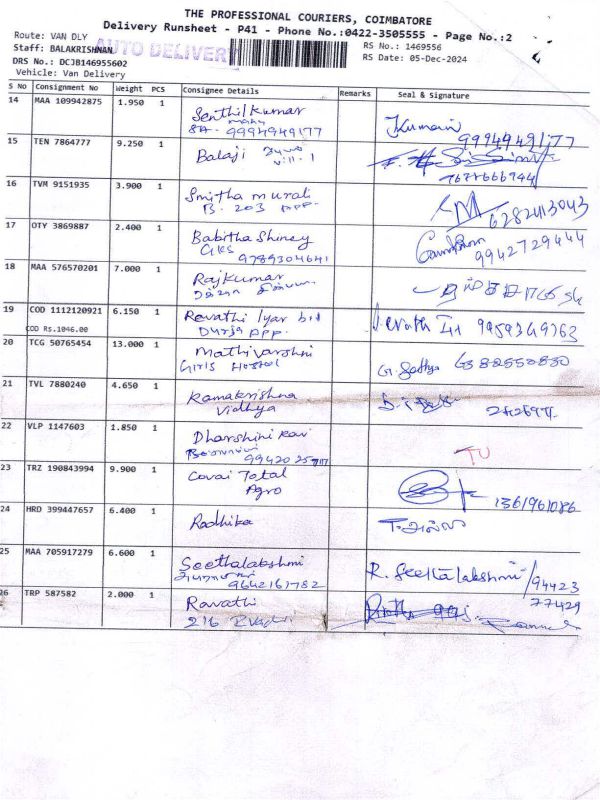 THE PROFESSIONAL COURIERS, COIMBATORE
Delivery Runsheet - P41 - Phone No.:0422-3505555 - Page No.:2
Route: VAN DLY
RS No.: 1469556
Staff: BALAKRISHNAN
AUTO DELIVERY
RS Date: 05-Dec-2024
DRS No.: DCJB146955602
Vehicle: Van Delivery
S No Consignment No Weight PCS Consignee Details Remarks Seal & Signature
14 MAA 109942875 1.950 1 Senthil Kumar
9994949177 Kumar 9994949177
15 TEN 7864777 9.250 1 Balaji
16 TVM 9151935 3.900 1 Smitha murali
B. 203 App. 6282413043
17 OTY 3869887 2.400 1 Babitha Shiney
GKS
9789304641 9942729444
18 MAA 576570201 7.000 1 Rajkumar
19 COD 1112120921 6.150 1 Revathi Iyar
COD Rs.1046.00 Durja App.
20 TCG 50765454 13.000 1 Mathivarshni
Girls Hostel G. Sathya 6382550830
21 TVL 7880240 4.650 1 Ramakrishna
Vidhya
22 VLP 1147603 1.850 1 Dharshini
TU
23 TRZ 190843994 9.900 1 Covai Total
Agro
24 HRD 399447657 6.400 1 Radhika
25 MAA 705917279 6.600 1 Seethalakshmi
9642161782 R. Seethalakshmi / 94423
77429
26 TRP 587582 2.000 1 Ravathi
216